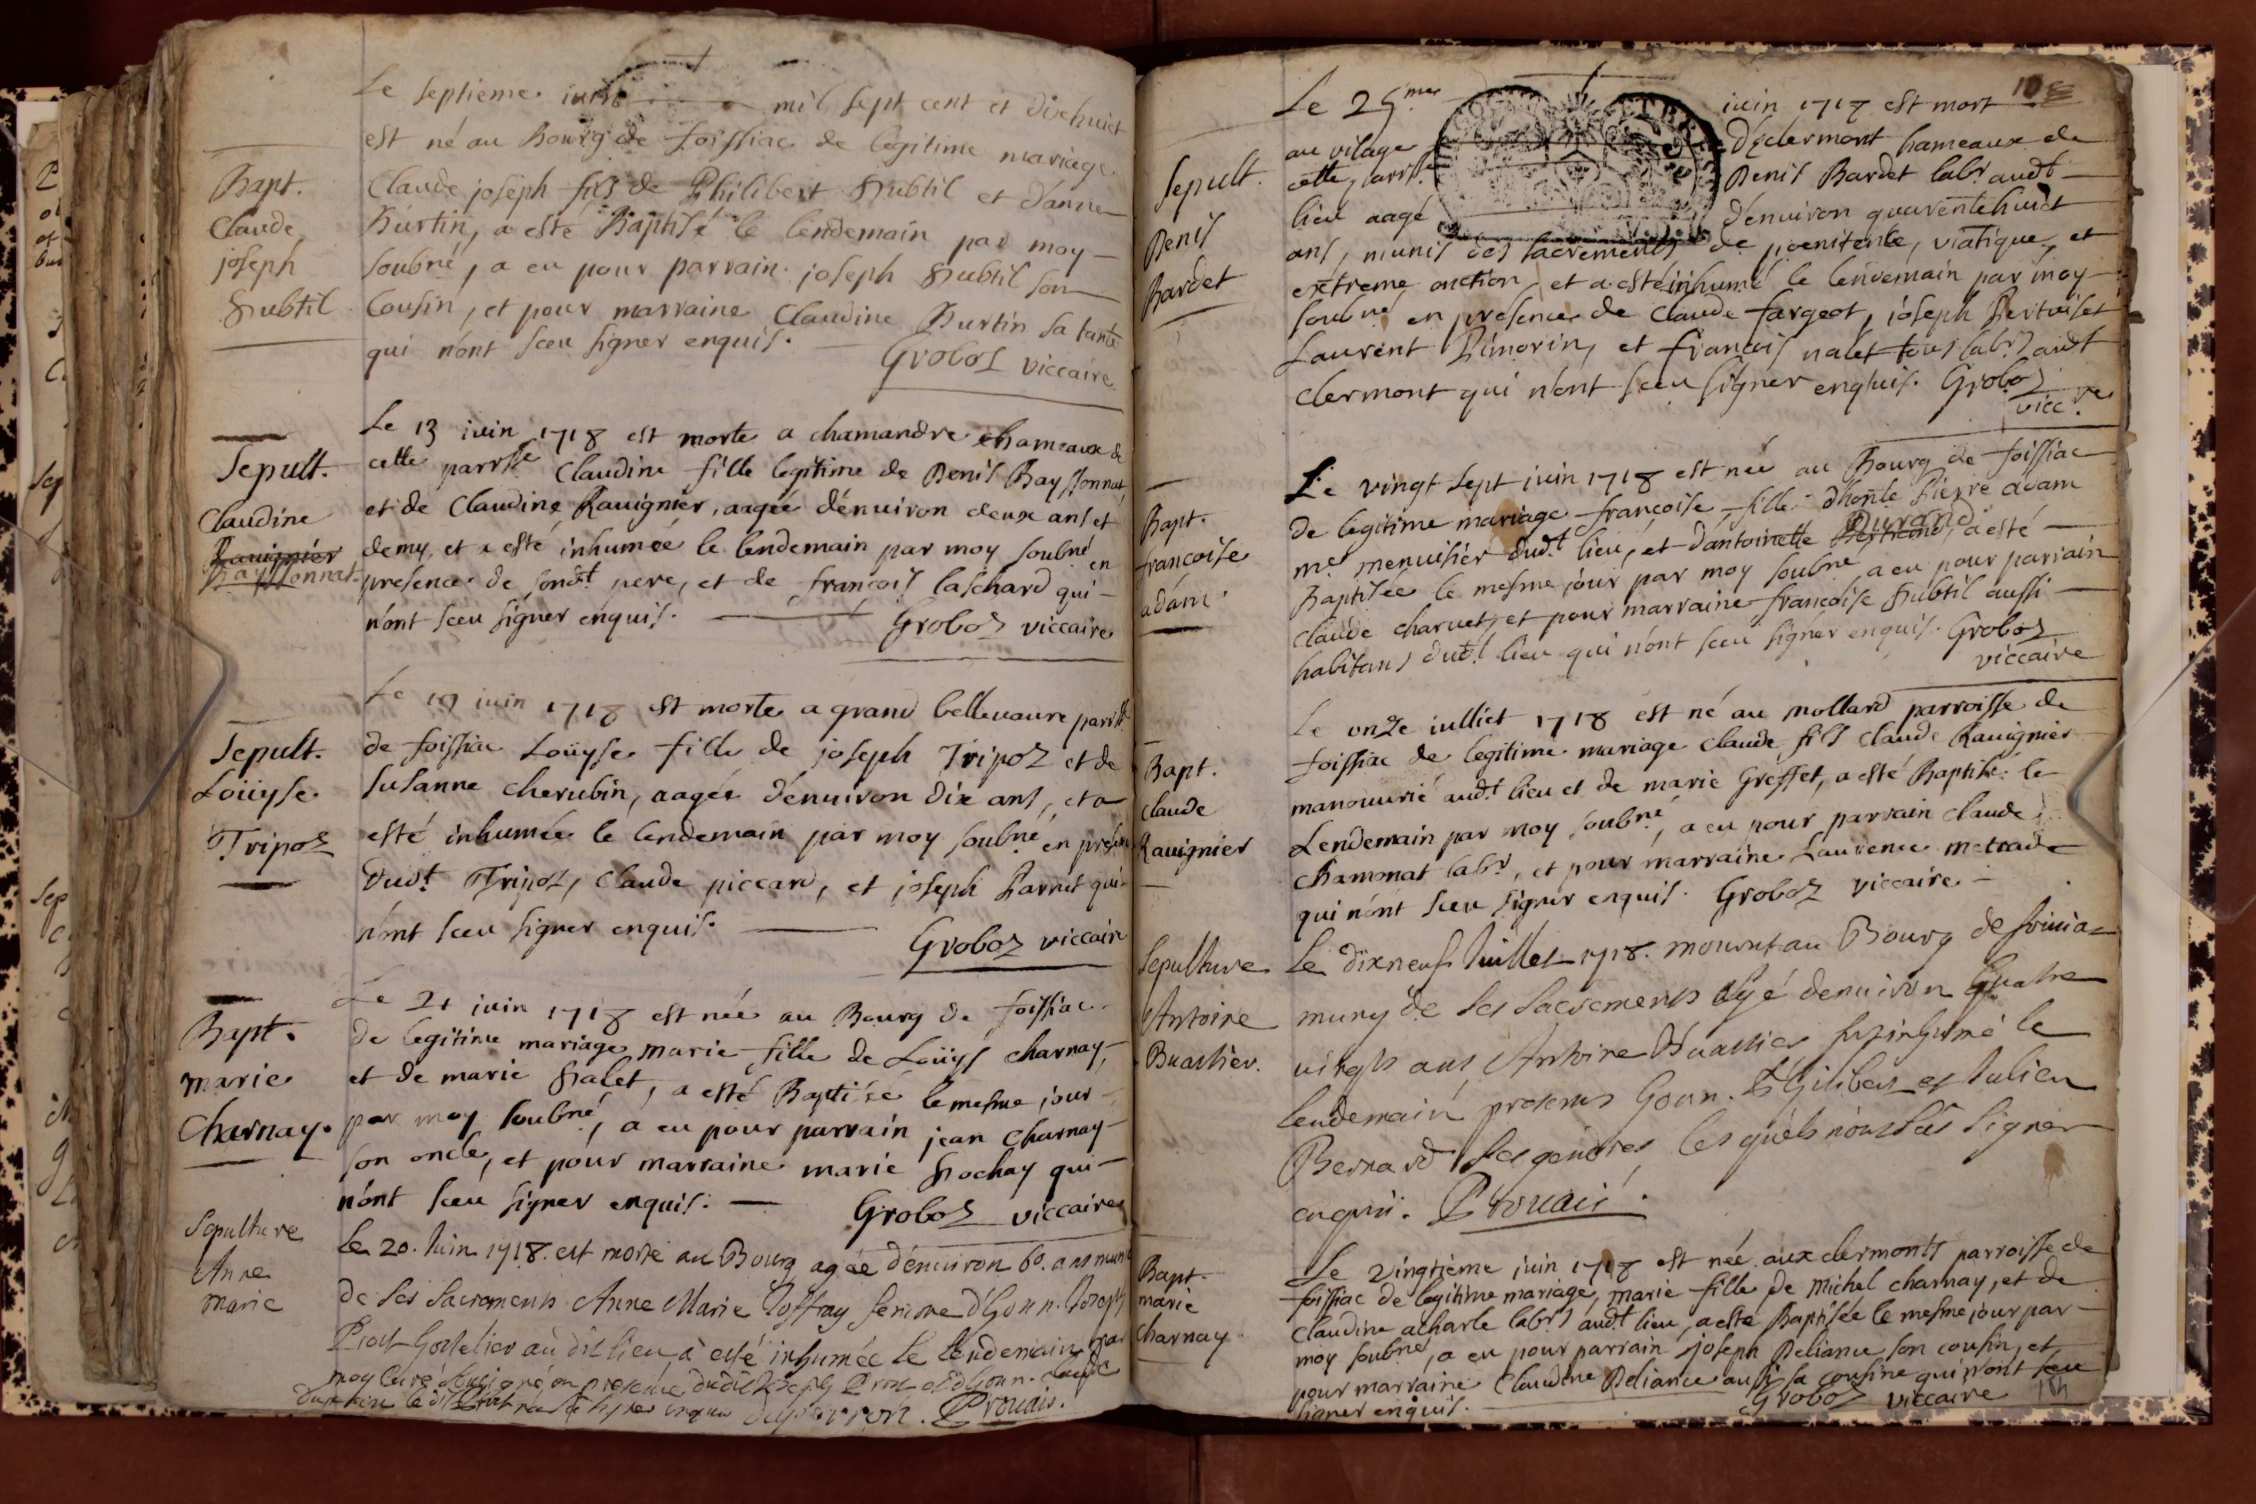 Le septieme iuin mil sept cent et dixhuict
est né au Bourg de foissiac de legitime mariage
Bapt.
Claude
joseph
Subtil
Claude joseph fils de Philibert Subtil et d'anne
Burtin, a esté Baptisé le lendemain par moy
soubné, a eu pour parrain joseph Subtil son
Cousin, et pour marraine Claudine Burtin sa tante
qui n'ont sceu signer enquis. Groboz viccaire
Sepult.
Claudine
Rauignier
Bayssonnat
Le 13 iuin 1718 est morte a chamandre hameaux de
cette parrsse Claudine fille legitime de Denis Bayssonnat
et de Claudine Rauignier, aagée d'enuiron deux ans et
demy, et a esté inhumée le lendemain par moy soubné en
presence de sondt pere, et de françois laschard qui
n'ont sceu signer enquis. Groboz viccaire
Sepult.
Loüyse
Tripoz
Le 19 iuin 1718 est morte a grand bellevaure parrsse
de foissiac Loüyse fille de joseph Tripoz et de
Susanne cherubin, aagée d'enuiron dix ans, et a
esté inhumée le lendemain par moy soubné en presence
dudt Tripoz, Claude piccard, et joseph Parrut qui
n'ont sceu signer enquis. Groboz viccaire
Bapt.
marie
Charnay.
Le 21 iuin 1718 est née au Bourg de foissiac
de legitime mariage marie fille de Loüys charnay,
et de marie Salet, a esté Baptisée le mesme jour
par moy soubné, a eu pour parrain jean Charnay
son oncle, et pour marraine marie Sochay qui
n'ont sceu signer enquis. Groboz viccaire
Sepulture
Anne
Marie
Le 20. Iuin 1718. est morte au Bourg agée d'enuiron 60. ans munie
de ses sacrements Anne Marie Joffray femme d'honn. Joseph
Prost hostelier au dit lieu, a esté inhumée le lendemain par
moy curé soussigné en presence dudit Joseph Prost et d'honn. Claude
Duperron. Prouais.
108
Sepult.
Denis
Bardet
Le 25me iuin 1718 est mort
au vilage d'Eclermont hameaux de
cette parrsse Denis Bardet labr audt
lieu aagé d'enuiron quarentehuict
ans, munis des sacrements de poenitence, viatique, et
extreme onction, et a esté inhumé le lendemain par moy
soubné en presence de Claude fargeot, joseph Pertuiset
Laurent Pimorin, et françois nalet tous labrs audt
clermont qui n'ont sceu signer enquis. Groboz
viccre
Bapt.
françoise
adam.
Le vingt sept iuin 1718 est née au Bourg de foissiac
de legitime mariage françoise fille d'honte Pierre adam
me menuisier dudt lieu, et d'antoinette Durand, a esté
Baptisée le mesme jour par moy soubné a eu pour parrain
Claude charuet, et pour marraine françoise Subtil aussi
habitans dudt lieu qui n'ont sceu signer enquis. Groboz
viccaire
Bapt.
Claude
Rauignier
Le onze iulliet 1718 est né au mollard parroisse de
foissiac de legitime mariage Claude fils Claude Rauignier
manouurié audt lieu et de marie Greffet, a esté Baptisé le
Lendemain par moy soubné, a eu pour parrain Claude
Chamonat labr, et pour marraine Laurence metrade
qui n'ont sceu signer enquis. Groboz viccaire
Sepulture
Antoine
Buathier.
Le dixneuf Juillet 1718. mourut au Bourg de foissia
muny de ses sacrements Agé denuiron Quatre
vingts ans Antoine Buathier fut inhumé le
lendemain presents honn. Philibert et Julien
Bernard ses gendres lesquels n'ont sceu signer
enquis. Prouais.
Bapt.
marie
charnay
Le Vingtieme juin 1718 est née aux clermonts parroisse de
foissiac de legitime mariage, marie fille de Michel charnay, et de
Claudine acharle labrs audt lieu, a esté Baptisée le mesme jour par
moy soubné, a eu pour parrain joseph Deliance son cousin, et
pour marraine Claudine Deliance aussi sa cousine qui n'ont sceu
signer enquis. Groboz viccaire